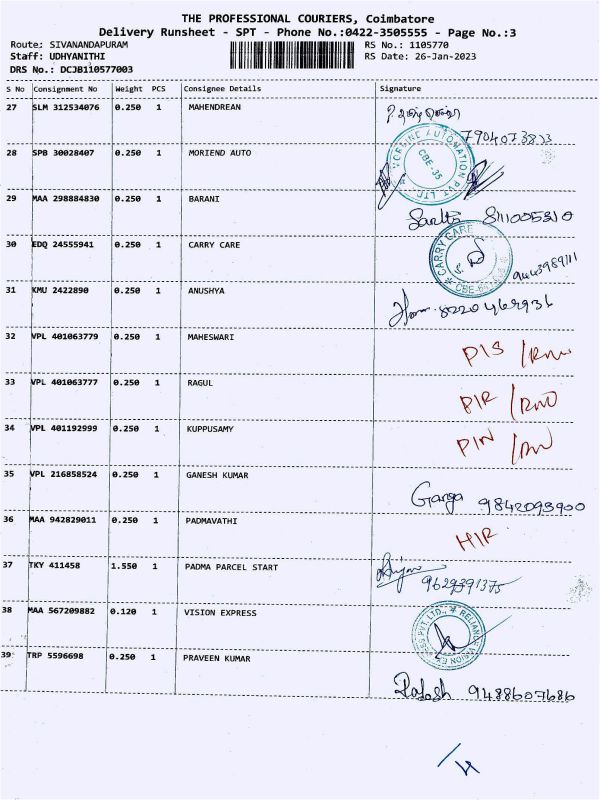 THE PROFESSIONAL COURIERS, Coimbatore
Delivery Runsheet - SPT - Phone No.:0422-3505555 - Page No.:3
Route: SIVANANDAPURAM RS No.: 1105770
Staff: UDHYANITHI RS Date: 26-Jan-2023
DRS No.: DCJB110577003
S No Consignment No Weight PCS Consignee Details Signature
27 SLM 312534076 0.250 1 MAHENDREAN
7904073823
28 SPB 30028407 0.250 1 MORIEND AUTO
AUTOMATION PVT LTD CBE-35
29 MAA 298884830 0.250 1 BARANI
8111005310
30 EDQ 24555941 0.250 1 CARRY CARE
CARRY CARE
31 KMU 2422890 0.250 1 ANUSHYA
32 VPL 401063779 0.250 1 MAHESWARI
DIS
33 VPL 401063777 0.250 1 RAGUL
34 VPL 401192999 0.250 1 KUPPUSAMY
PIN
35 VPL 216858524 0.250 1 GANESH KUMAR
Ganga 9842093900
36 MAA 942829011 0.250 1 PADMAVATHI
HIR
37 TKY 411458 1.550 1 PADMA PARCEL START
9629391375
38 MAA 567209882 0.120 1 VISION EXPRESS
39 TRP 5596698 0.250 1 PRAVEEN KUMAR
9488607686